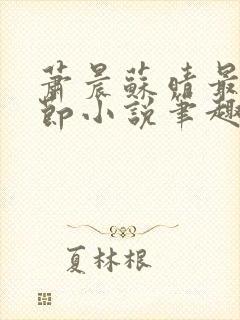 蕭晨蘇晴最
節小說筆趣
夏林根